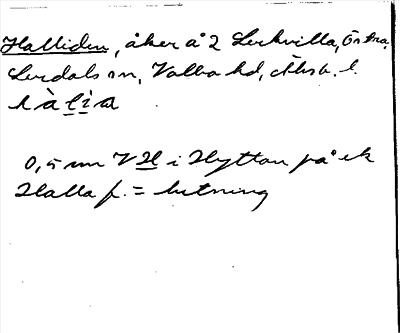 Halliden, åker å 2 Lerkvilla, Östra
Lerdals sn, Valbo hd, Älvsb. l.
lìa
0,5 mm V H i Hyttan på ek
Halla f. = lutning